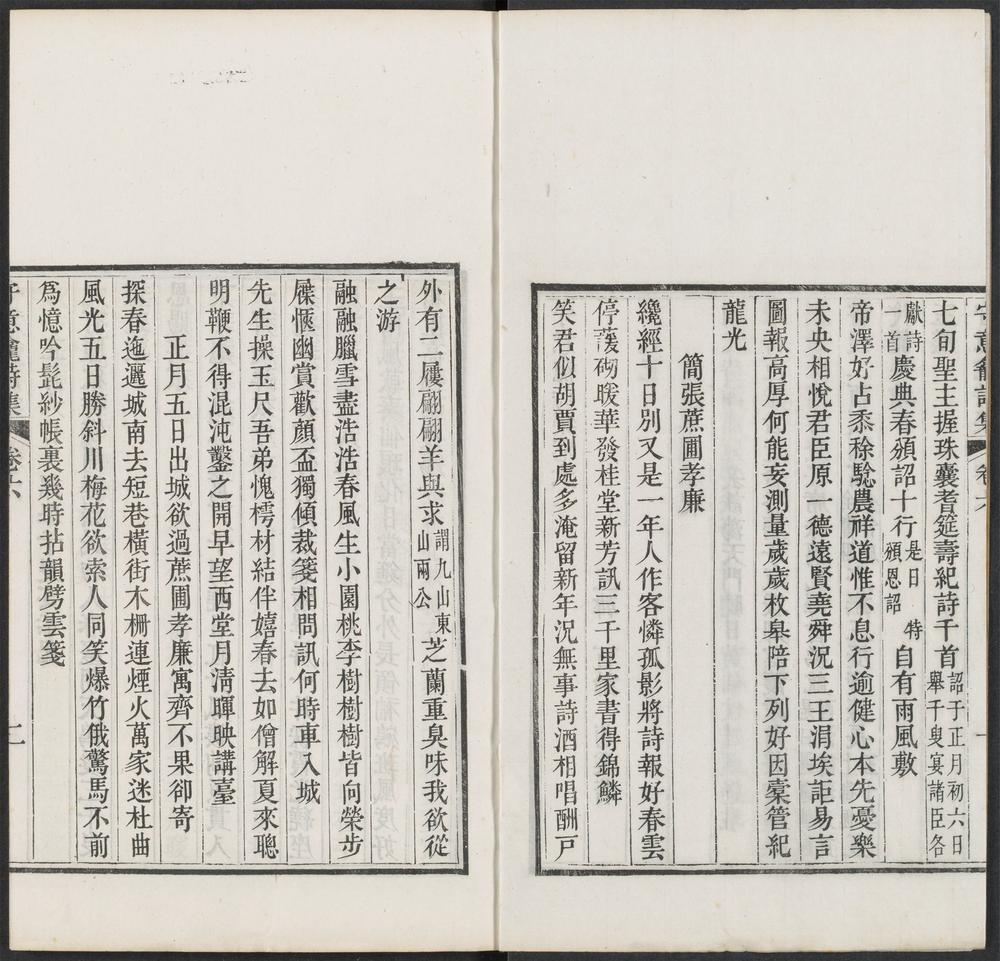 七旬聖主握珠囊耆筵壽紀詩千首詔于正月初六日舉千叟宴諸臣各
獻詩一首慶典春頒詔十行是日特頒恩詔自有雨風敷
帝澤好占黍稌騐農祥道惟不息行逾健心本先憂樂
未央相悅君臣原一德遠賢堯舜況三王涓埃詎易言
圖報高厚何能妄測量歲歲枚皋陪下列好因橐管紀
龍光
簡張蔗圃孝廉
纔經十日別又是一年人作客憐孤影將詩報好春雲
停蔎砌暖華發桂堂新芳訊三千里家書得錦鱗
笑君似胡賈到處多淹留新年況無事詩酒相唱酬戸
外有二屨翩翩羊與求謂九山東山兩公芝蘭重臭味我欲從
之游
融融臘雪盡浩浩春風生小園桃李樹樹樹皆向榮步
屧愜幽賞歡顏盃獨傾裁箋相問訊何時車入城
先生操玉尺吾弟愧樗材結伴嬉春去如僧解夏來聰
明鞭不得混沌鑿之開早望西堂月清暉映講臺
正月五日出城欲過蔗圃孝廉寓齊不果卻寄
探春迤邐城南去短巷橫街木柵連煙火萬家迷杜曲
風光五日勝斜川梅花欲索人同笑爆竹俄驚馬不前
爲憶吟髭紗帳裏幾時拈韻劈雲箋